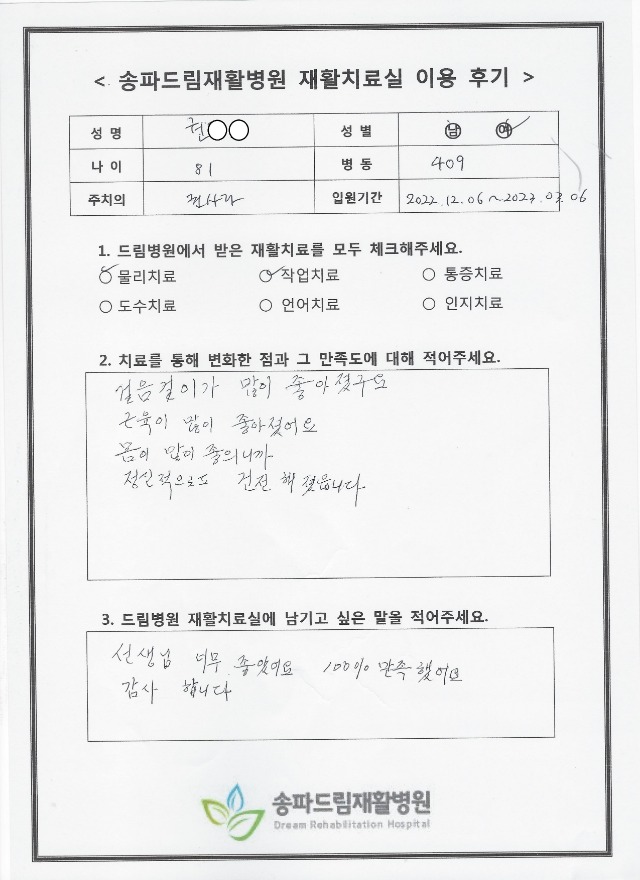 < 송파드림재활병원 재활치료실 이용 후기 >
성 명 권○○ 성 별 남 여
나 이 81 병 동 409
주치의 입원기간 2022.12.06~2023.03.06
1. 드림병원에서 받은 재활치료를 모두 체크해주세요.
○ 물리치료 ○ 작업치료 ○ 통증치료
○ 도수치료 ○ 언어치료 ○ 인지치료
2. 치료를 통해 변화한 점과 그 만족도에 대해 적어주세요.
걸음걸이가 많이 좋아졌구요
근육이 많이 좋아졌어요
몸이 많이 좋의니까
정신적으로프 건전해졌읍니다.
3. 드림병원 재활치료실에 남기고 싶은 말을 적어주세요.
선생님 너무 좋았어요 100% 만족했어요
감사 합니다
송파드림재활병원
Dream Rehabilitation Hospital